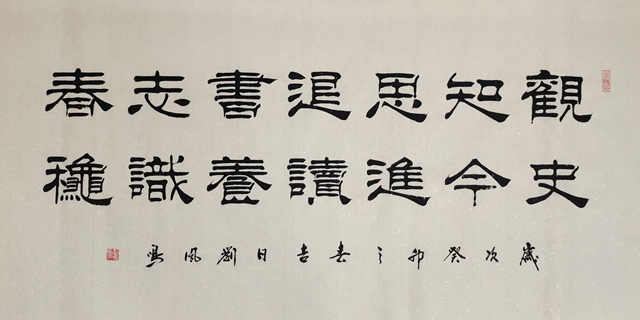 觀史
知今
思進
退讀
書養
志識
春龝
歲次癸卯之春吉日劉风